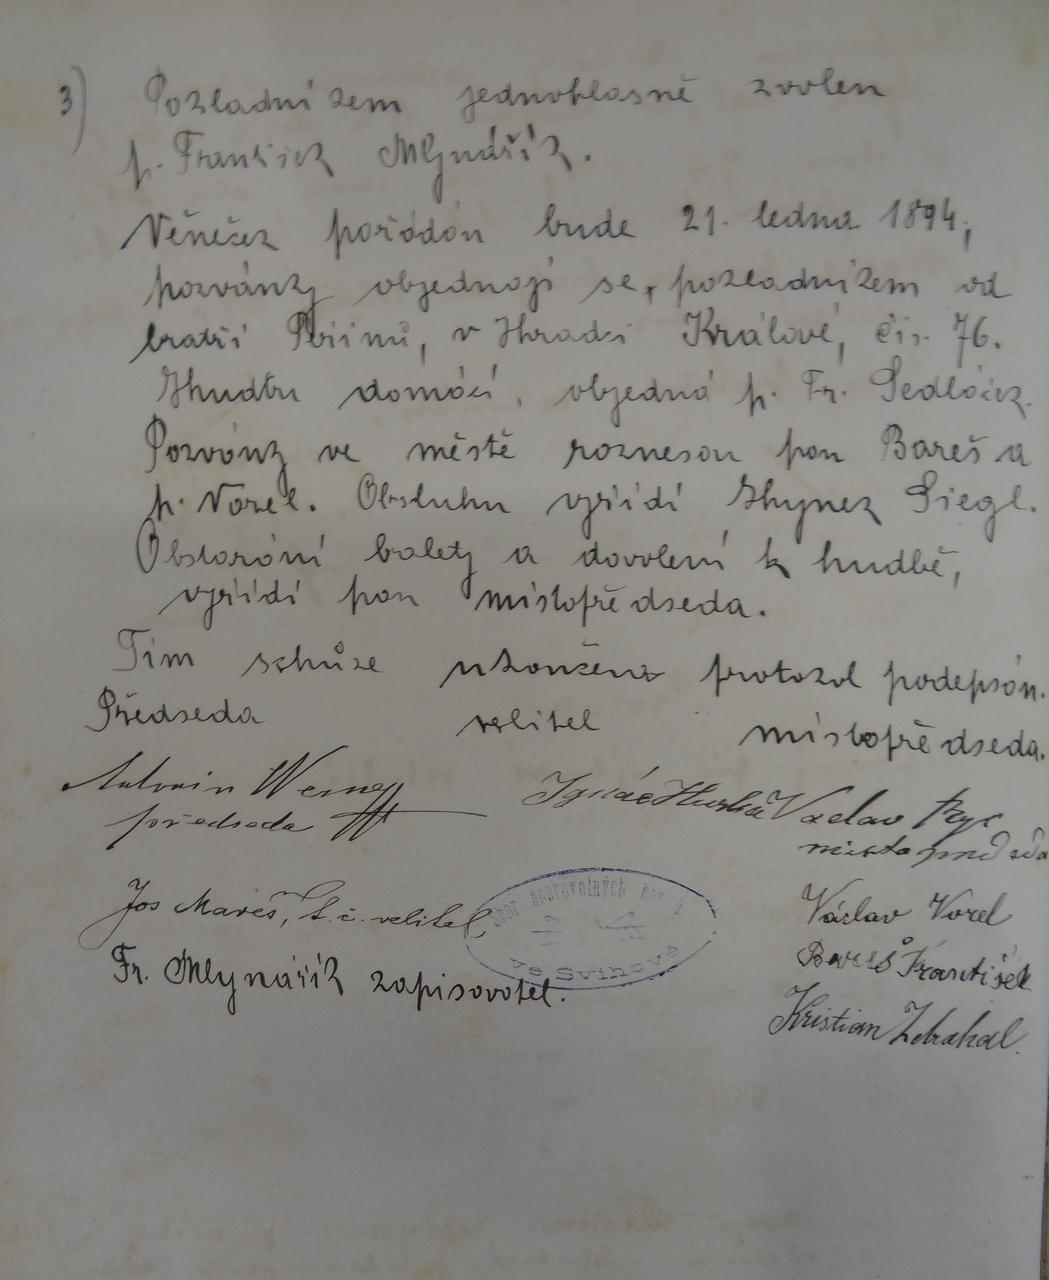 3) Pokladníkem jednohlasně zvolen
p. František Mlynářík.
Věneček pořádán bude 21. ledna 1894,
pozvánky objednají se, pokladníkem od
bratří Peřinů, v Hradci Králové, čís. 76.
Hudbu domácí, objedná p. Fr. Sedláček.
Pozvánky ve městě roznesou pan Bareš a
p. Vorel. Obsluhu vyřídí Hynek Siegl.
Obstarání balety a dovolení k hudbě,
vyřídí pan místopředseda.
Tím schůze ukončena protokol podepsán.
Předseda velitel místopředseda.
Antonin Werner Ignác Václav
předseda místopředseda
Jos Mareš, t. č. velitel Václav Vorel
Sbor dobrovolných hasičů
ve Svinově
Fr. Mlynářík zapisovatel. Bareš František
Kristian Zdrahal.